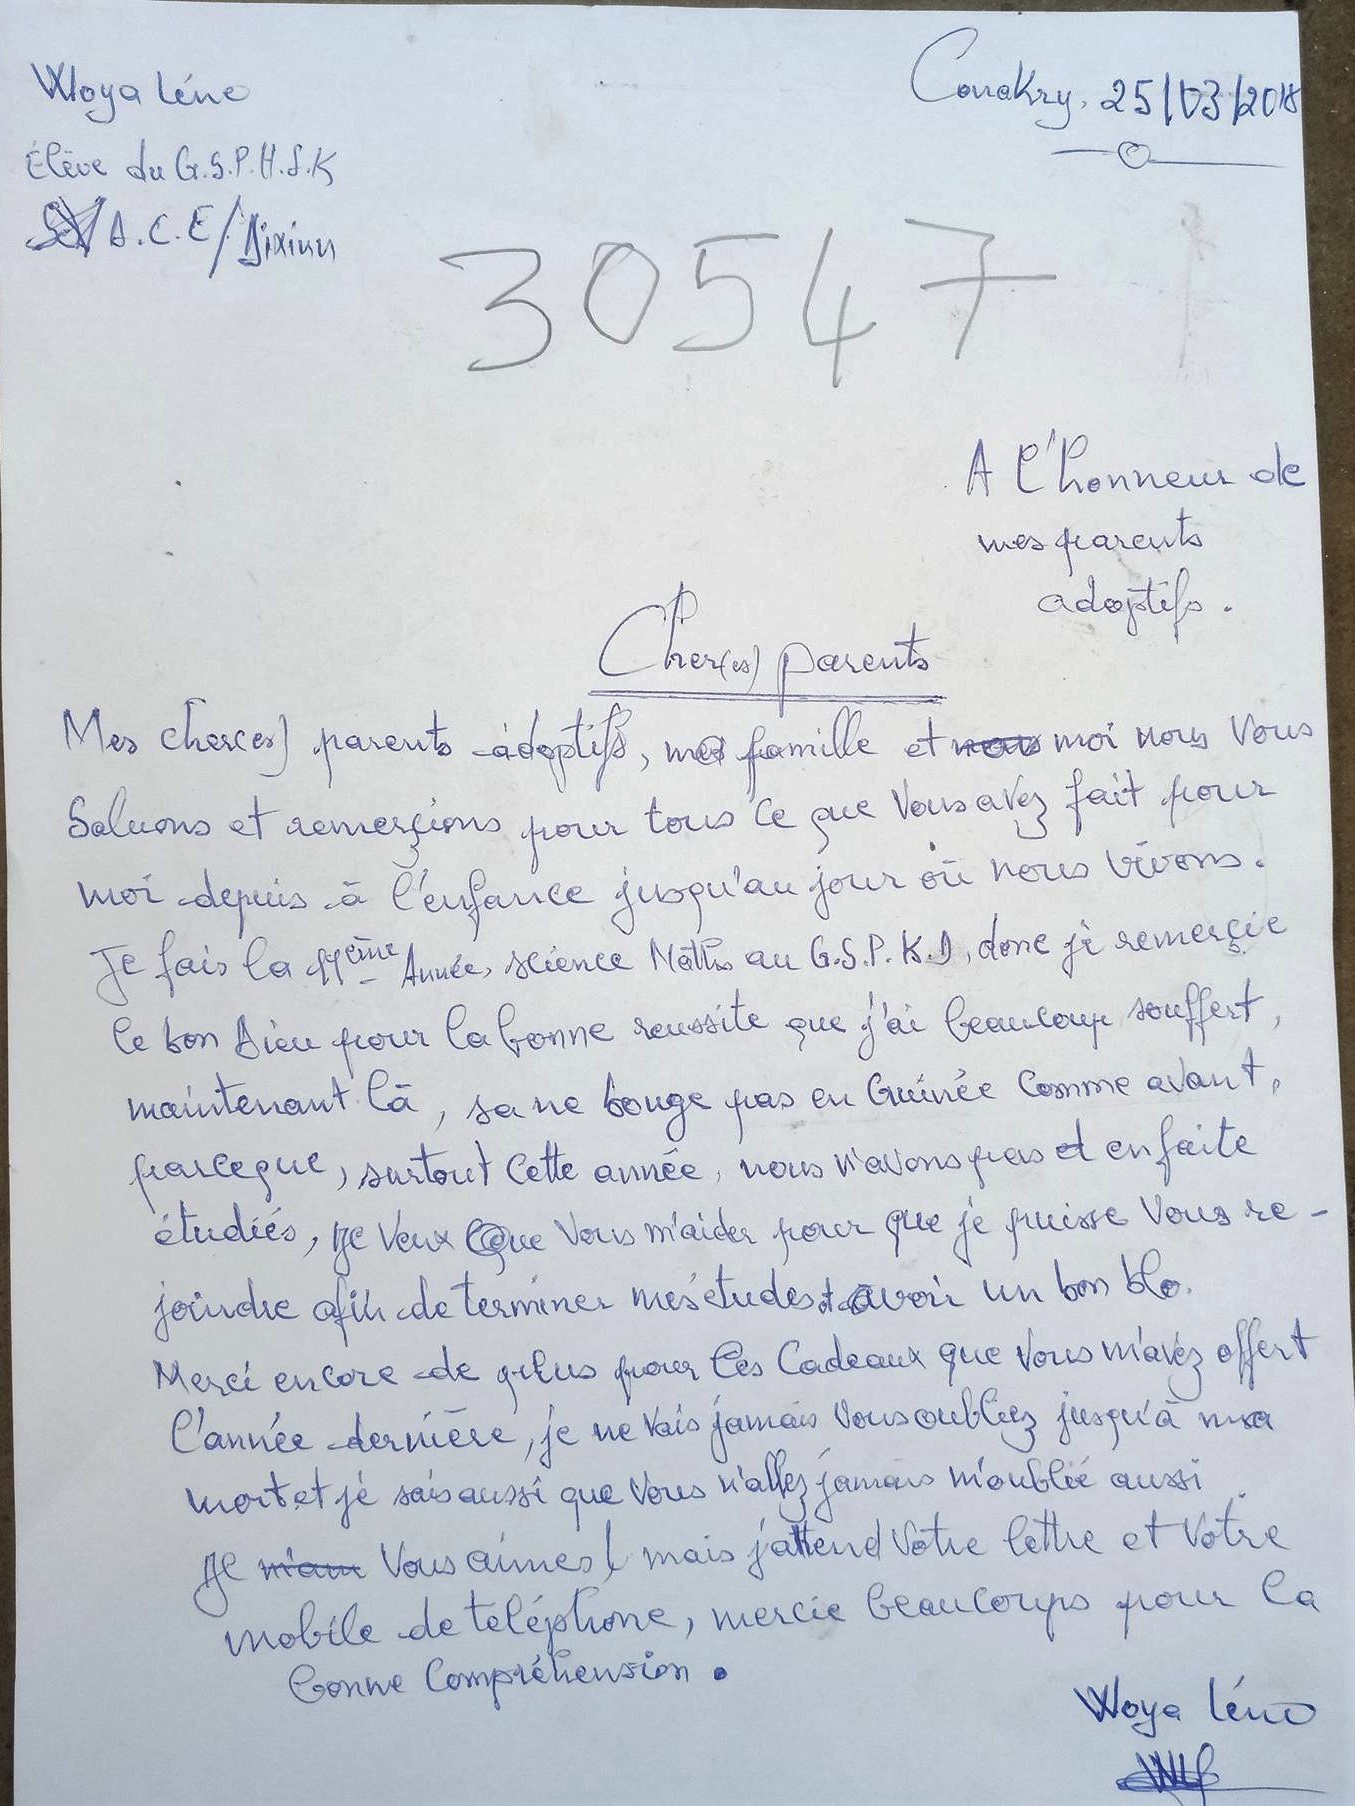 Woya Léno
Conakry, 25/03/2018
Élève du G.S.P.H.S.K
A.C.E/Dixinn
30547
A l'honneur de
mes parents
adoptifs.
Cher(es) parents
Mes cher(es) parents adoptifs, ma famille et moi nous Vous
Saluons et remerçions pour tous ce que Vous avez fait pour
moi depuis à l'enfance jusqu'au jour où nous vivons.
Je fais la 11ème Année, science Maths au G.S.P.K.D, donc je remerçie
le bon Dieu pour la bonne reussite que j'ai beaucoup souffert,
maintenant là, sa ne bouge pas en Guinée Comme avant,
parceque, surtout Cette année, nous n'avons pas et en faite
étudiés, Je Veux Que Vous m'aider pour que je puisse Vous re-
joindre afin de terminer mes études et avoir un bon blo.
Merci encore de plus pour les Cadeaux que Vous m'avez offert
l'année dernière, je ne Vais jamais Vous oubliez jusqu'à ma
mort et je sais aussi que Vous n'allez jamais m'oublié aussi
Je Vous aimes ! mais j'attend Votre lettre et Votre
mobile de teléphone, mercie beaucoups pour la
bonne Compréhension.
Woya Léno